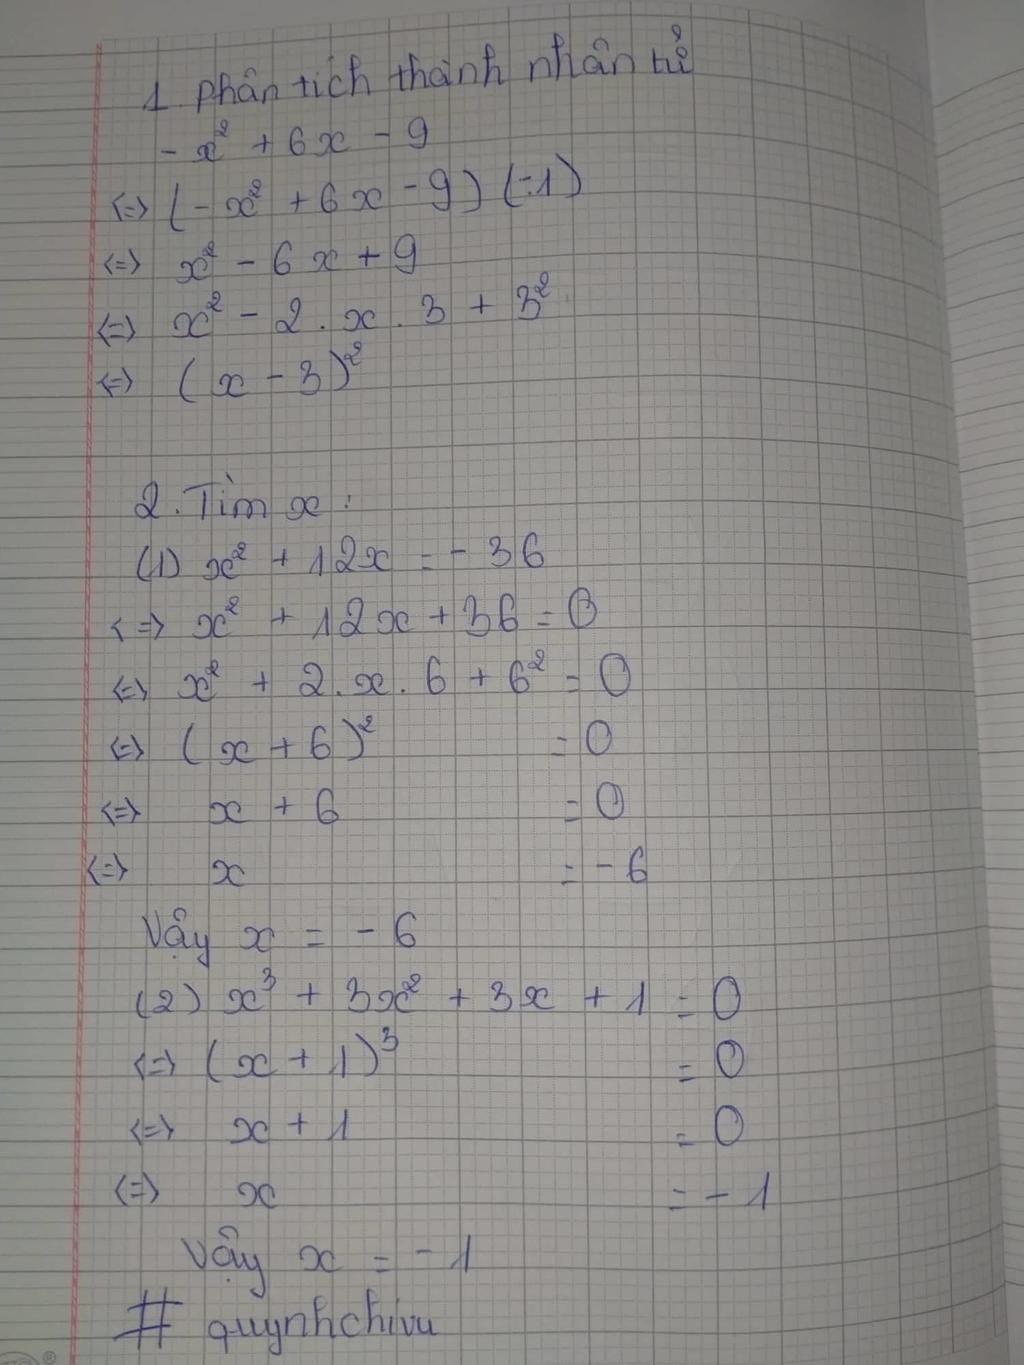 1. phân tích thành nhân tử
- x² + 6x - 9
<=> (- x² + 6x - 9) (-1)
<=> x² - 6x + 9
<=> x² - 2 . x . 3 + 3²
<=> (x - 3)²
2. Tìm x :
(1) x² + 12x = - 36
<=> x² + 12x + 36 = 0
<=> x² + 2 . x . 6 + 6² = 0
<=> (x + 6)² = 0
<=> x + 6 = 0
<=> x = - 6
Vậy x = - 6
(2) x³ + 3x² + 3x + 1 = 0
<=> (x + 1)³ = 0
<=> x + 1 = 0
<=> x = - 1
Vậy x = - 1
# quynhchivu